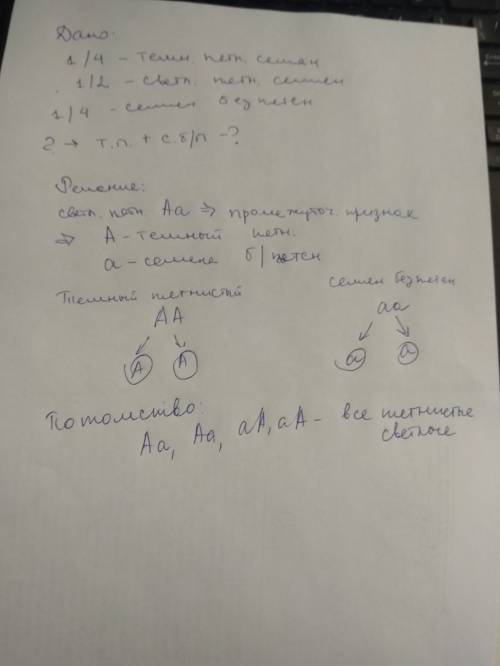 Дано:
1/4 - темн. пятн. семян
1/2 - светл. пятн. семян
1/4 - семян без пятен
2 → т.п. + с.б/п -?
Решение:
светл. пятн Аа ⇒ промежуточ. признак
⇒ А - темный пятн.
а - семена б/пятен
Темный пятнистый
АА
А А
семян без пятен
аа
а а
Потомство:
Аа, Аа, аА, аА - все пятнистые
светлые